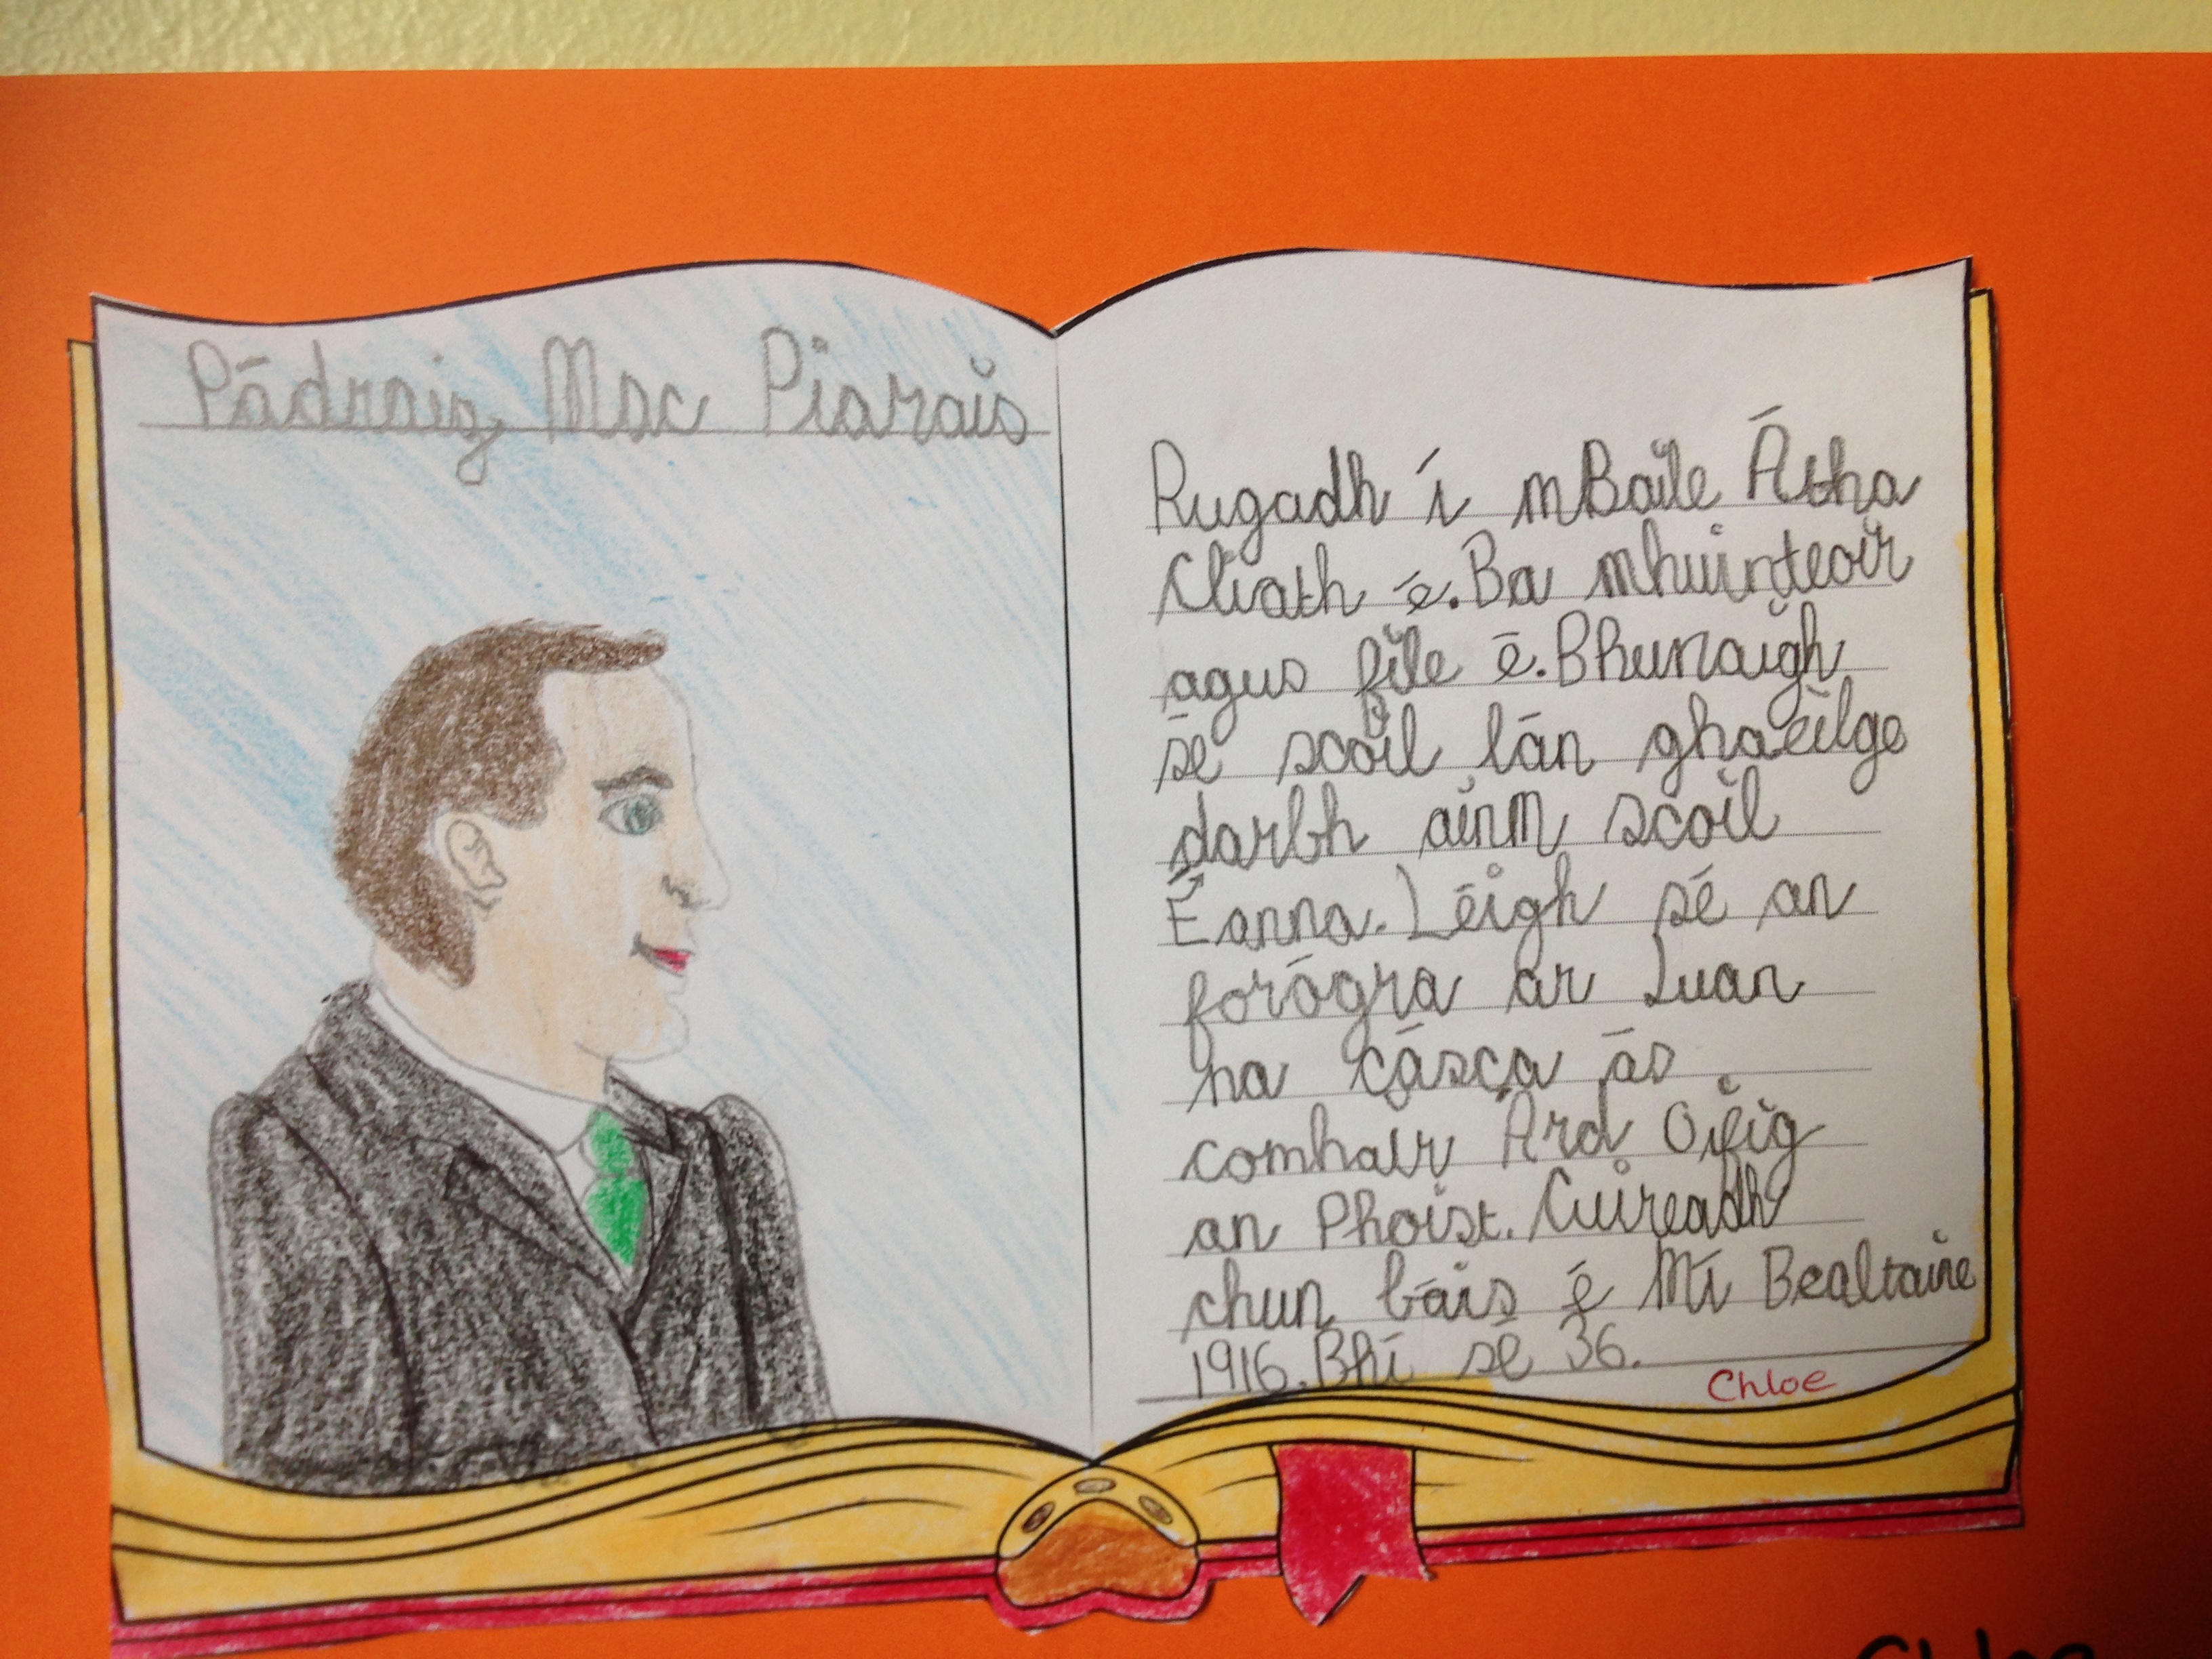 Pádraig Mac Piarais
Rugadh í mBaile Átha
Cliath é. Ba mhuinteoir
agus file é. Bhunaigh
sé scoil lán ghaeilge
darbh ainm scoil
Éanna. Léigh sé an
forógra ar Luan
na cásca ás
comhair Árd Oifig
an Phoist. Cuireadh
chun báis é Mí Bealtaine
1916. Bhí sé 36.
Chloe
Chloe